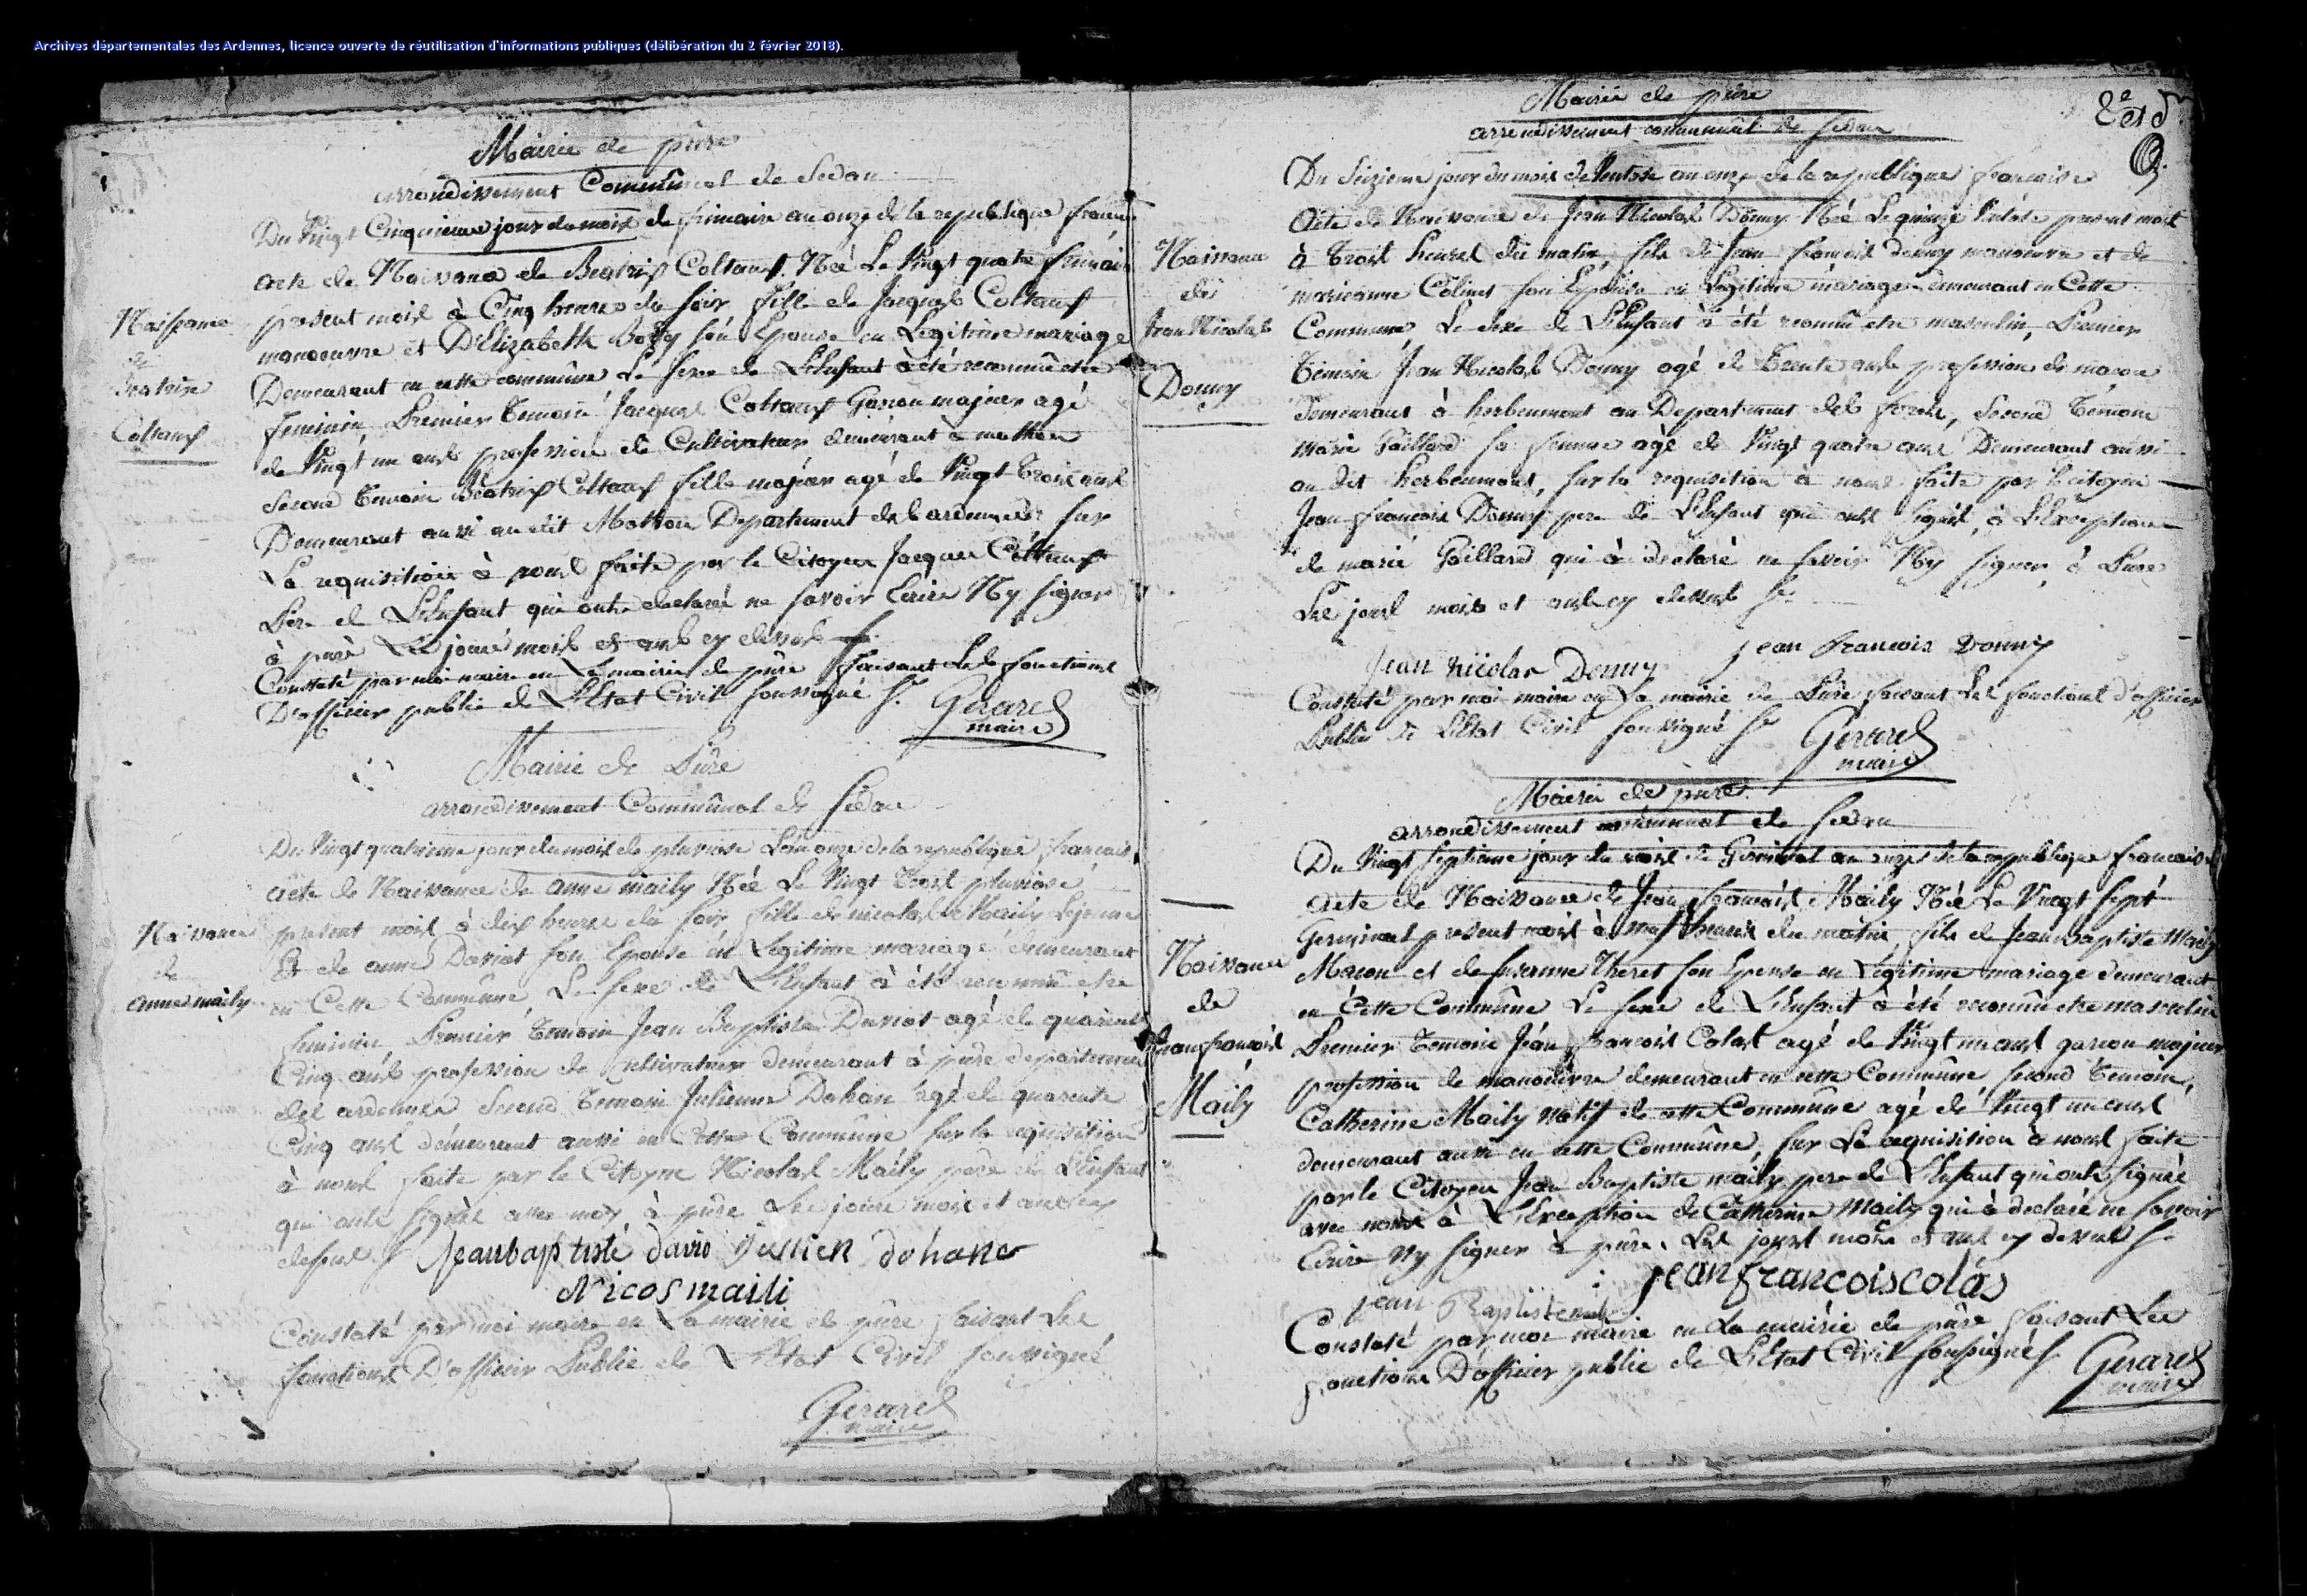 Archives départementales des Ardennes, licence ouverte de réutilisation d'informations publiques (délibération du 2 février 2018).
Mairie de pûre
arrondissement Communal de Sedan
Du Vingt Cinquieme jour du mois de frimaire an onze de la republique
acte de Naissance de Beatrix Née Le Vingt quatre frimaire
present mois à Cinq heures du soir fille de Jacques
manoeuvre et D'Elizabette son Epouse en Legitime mariage
Demeurant en cette commûne Le sexe de L'Enfant à été reconnû etre
feminin, Premier temoin Jacques Garcon majeur agé
de Vingt un ans profession de Cultivateur demeurant à
Second temoin Beatrix fille majeur agé de Vingt trois ans
Demeurant aussi au dit Departement des ardennes sur
La requisition à nous faite par le Citoyen Jacques
Pere de L'Enfant qui ont declaré ne savoir Ecrire Ny signer
à pure Les jours mois et ans cy dessus
Constaté par moi maire en La mairie de pûre faisant Les fonctions
D'officier public de L'Etat Civil soussigné Gerard
maire
Naissance
de
Beatrixe
Mairie de Pure
arrondissement Communal de Sedan
Du Vingt quatrieme jour du mois de pluviose L'an onze de la republique francaise
acte de Naissance de anne maily Née Le Vingt trois pluviose
present mois à dix heures du soir fille de nicolas Maily
Et de anne son Epouse en Legitime mariage demeurant
en Cette Commûne Le sexe de L'Enfant à été reconnû etre
feminin Premier temoin Jean Baptiste agé de quarente
Cinq ans profession de Cultivateur demeurant à pûre departement
des ardennes Second temoin Julienne Dohan agé de quarente
Cinq ans demeurant aussi en Cette Commûne sur la requisition
à nous faite par le Citoyen Nicolas Maily pere de L'Enfant
qui ont signés avec moy à pûre Les jours mois et ans cy
dessus Jeanbaptiste dohan
Nicos maili
Constaté par moi maire en La mairie de pûre faisant Les
fonctions D'officier Public de L'Etat Civil soussigné
Gerard
maire
Naissance
de
anne maily
Mairie de pûre
arrondissement communal de Sedan
Du Seizieme jour du mois de Ventose an onze de la republique francaise
Acte de Naissance de Jean Nicolas Donny Né Le quinze Ventose present mois
à trois heures du matin, fils de Jean francois donny manoeuvre et de
marieanne son Epouse en Legitime mariage demeurant en Cette
Commune, Le sexe de L'Enfant à été reconnû etre masculin, Premier
temoin Jean Nicolas Donny agé de trente ans profession de macon
demeurant à herbeumont au Departement des forets, Second temoin
Marie Gaillard sa femme agé de Vingt quatre ans Demeurant aussi
au dit herbeumont, sur la requisition à nous faite par le Citoyen
Jean francois Donny pere de L'Enfant qui ont signés, à L'Exception
de marie Gaillard qui à declaré ne savoir Ny signer, à Pure
Les jours mois et ans cy dessus
Jean Nicolas Donny jean francois Donny
Constaté par moi maire en La mairie de Pure faisant Les fonctions d'officier
Public de L'Etat Civil soussigné Gerard
maire
Naissance
de
Jean Nicolas
Donny
Mairie de pure
arrondissement communal de Sedan
Du Vingt septieme jour du mois de Germinal an onze de la republique francaise
acte de Naissance de Jean francois Maily Né Le Vingt sept
Germinal present mois à heures du matin, fils de Jean baptiste Maily
Macon et de susanne Theret son Epouse en Legitime mariage demeurant
en Cette Commûne Le sexe de L'Enfant à été reconnû etre masculin
Premier temoin Jean francois Colas agé de Vingt un ans garcon majeur
profession de manoeuvre demeurant en cette Commûne, second temoin,
Catherine Maily natif de cette Commûne agé de Vingt un ans
demeurant aussi en cette Commûne, sur La requisition à nous faite
par le Citoyen Jean Baptiste maily pere de L'Enfant qui ont signés
avec nous à L'Exception de Catherine Maily qui à declaré ne savoir
Ecrire Ny signer à pûre Les jours mois et ans cy dessus
jeanfrancoiscolas
jean Baptiste
Constaté par moi maire en La mairie de pûre faisant Les
fonctions D'officier public de L'Etat Civil soussigné Gerard
maire
Naissance
de
Jean francois
Maily